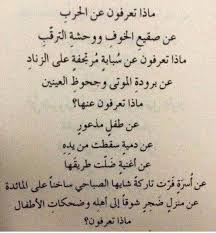 ماذا تعرفون عن الحرب
عن صقيع الخوفِ ووحشة الترقّبِ
ماذا تعرفون عن سُبابةٍ مُرتجفة على الزنادِ
عن برودةِ الموتى وجحوظ العينين
ماذا تعرفون عنها؟
عن طفلٍ مذعورٍ
عن دميةٍ سقطت من يدِهِ
عن أغنيةٍ ضلّت طريقها
عن أسرةٍ فرّت تاركةً شايها الصباحي ساخناً على المائدة
عن منزلٍ ضجرٍ شوقاً إلى أهله وضحكاتِ الأطفال
ماذا تعرفون؟